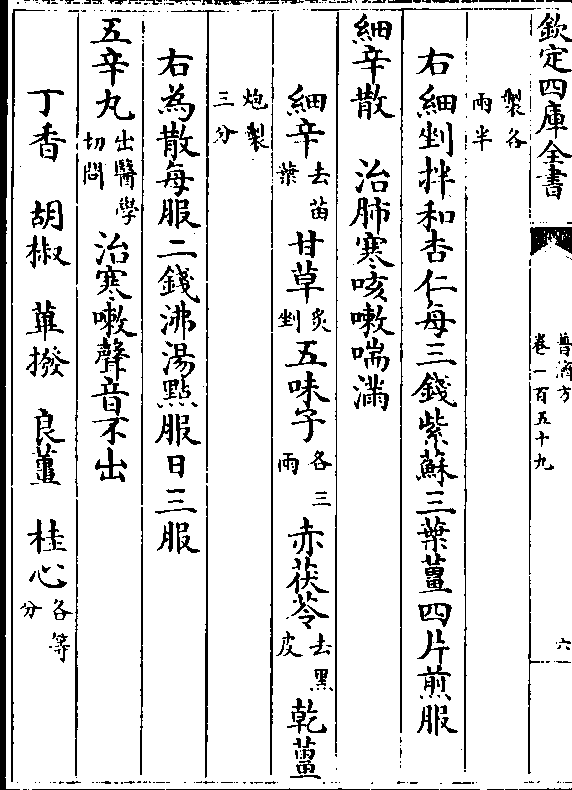 欽定四庫全書
普濟方
卷一百五十九
六
製各
兩半
右細剉拌和杏仁每三錢紫蘇三葉薑四片煎服
細辛散　治肺寒咳嗽喘滿
細辛去苗葉甘草炙剉五味子各三兩赤茯苓去黑皮乾薑
炮製
三分
右為散每服二錢沸湯點服日三服
五辛丸出醫學切問治寒嗽聲音不出
丁香　胡椒　蓽撥　良薑　桂心各等分